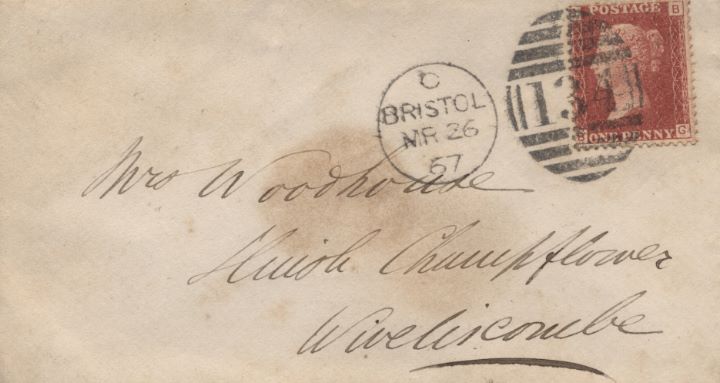 POSTAGE B
C
BRISTOL
MR 26
67
134
B ONE PENNY G
Mrs Woodhouse
Huish Champflower
Wiveliscombe